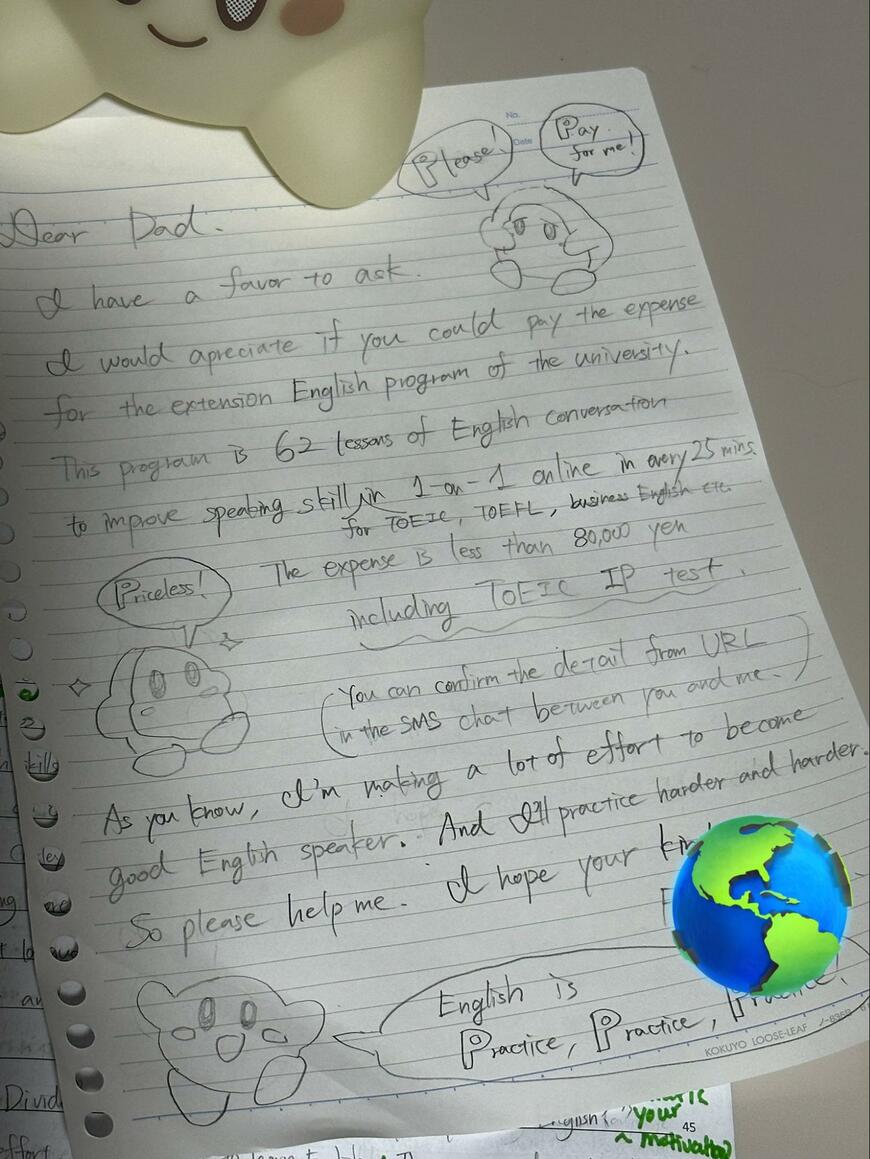 No.
Date
Please!
Pay for me!
Dear Dad.
I have a favor to ask.
I would apreciate if you could pay the expense
for the extension English program of the university.
This program is 62 lessons of English conversation
to improve speaking skill in 1-on-1 online in every 25 mins.
for TOEIC, TOEFL, business English etc.
Priceless!
The expense is less than 80,000 yen
including TOEIC IP test.
(You can confirm the detail from URL
in the SMS chat between you and me.)
As you know, I'm making a lot of effort to become
good English speaker. And I'll practice harder and harder.
So please help me. I hope your
English is
Practice, Practice, Practice!
KOKUYO LOOSE-LEAF
skills
Divid
effort
your
motivation
45